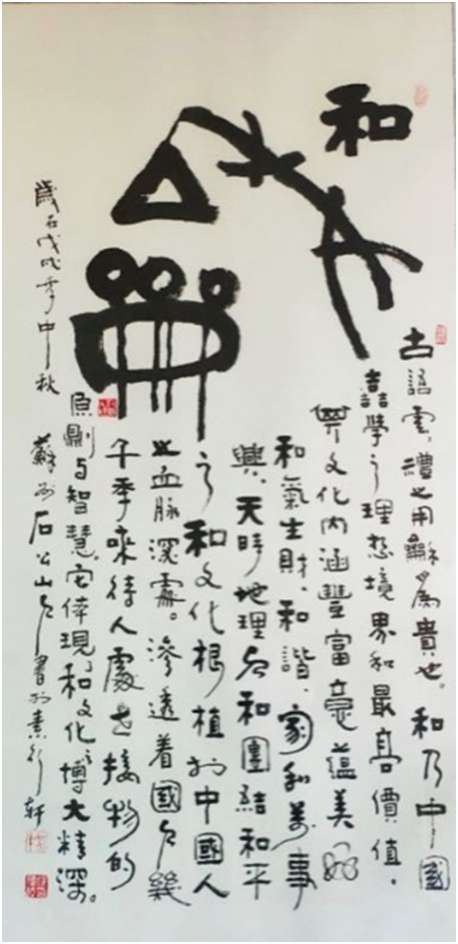 和
龢
古語雲，禮之用龢為貴也。和乃中國
喆學之理想境界和最高價值。
文化内涵豐富意蕴美好
和氣生財、和諧、家和萬事
興、天時地理人和團結和平
之和文化根植於中國人
之血脉深處。滲透着國人幾
千秊來待人處世接物的
原則与智慧。它体現、和文化、博大精深。
歲在戊戌秊中秋
蘇州石公山人書於素行軒